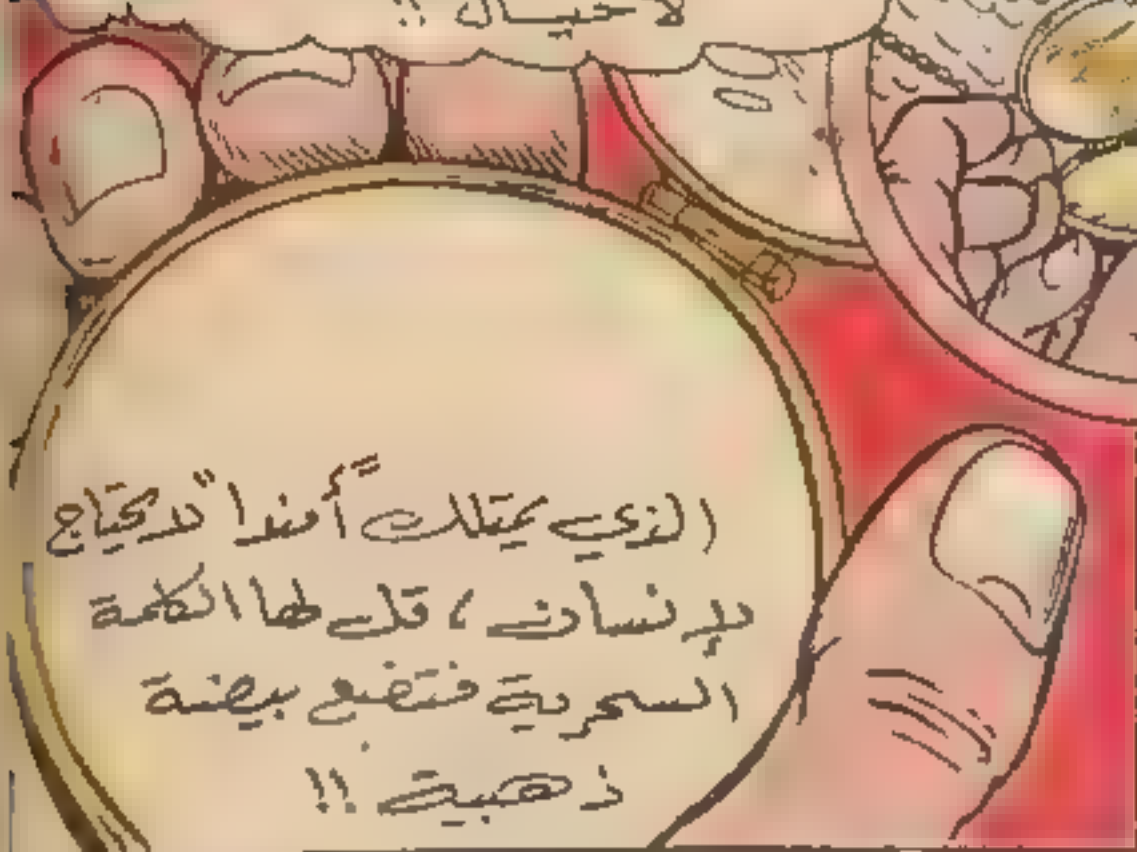 الذي يمتلك "أمندا" لا يحتاج
لإنسان ، قل لها الكلمة
السحرية فتضع بيضة
ذهبية !!